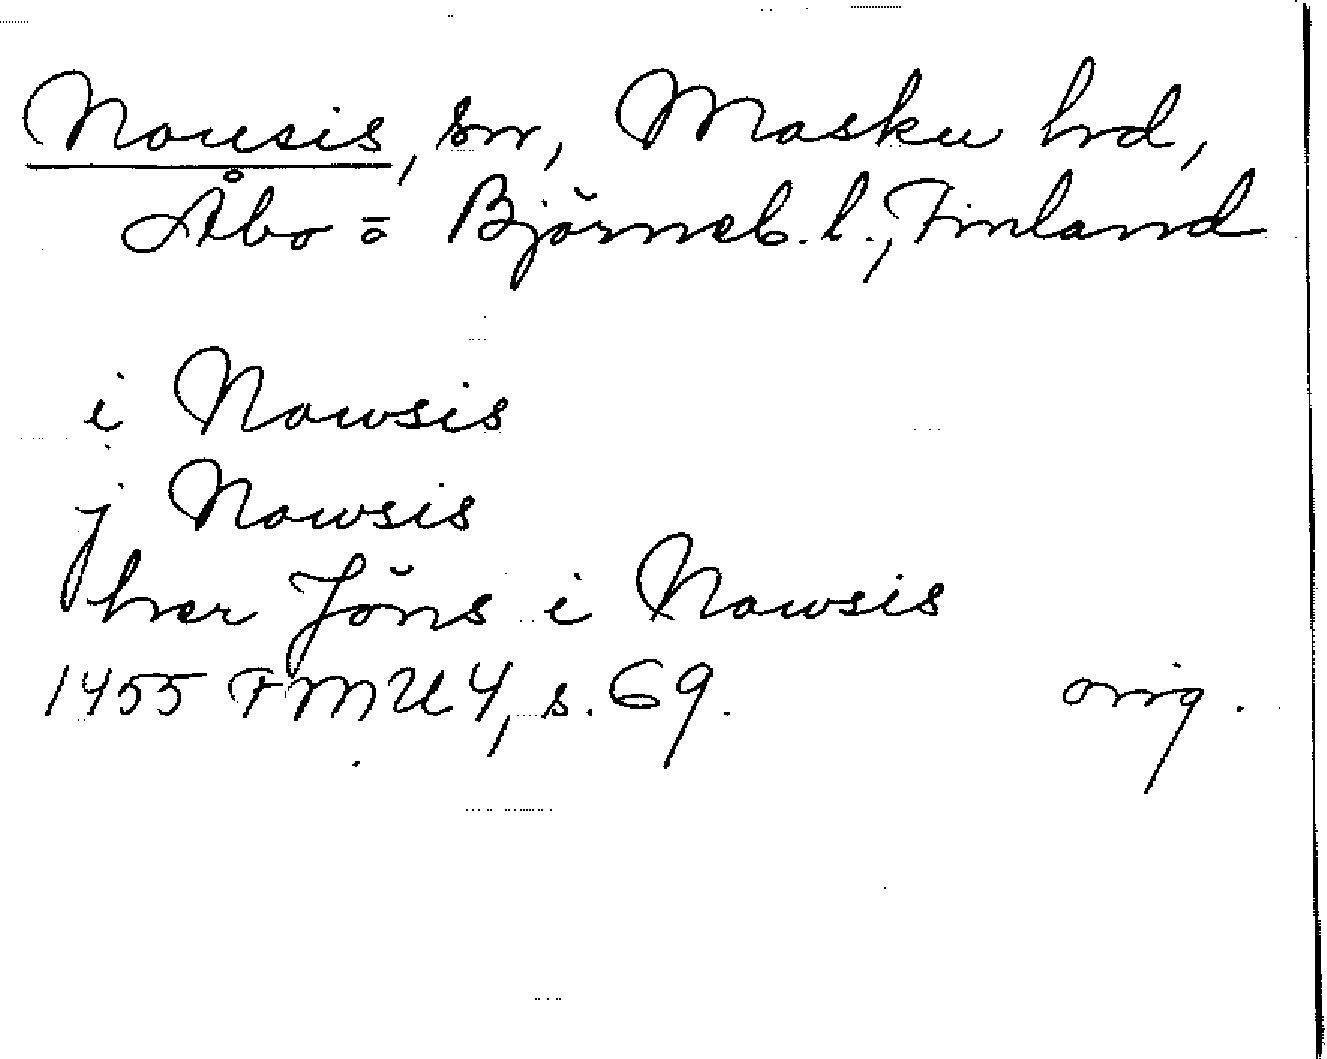 Nousis, sn, Masku hrd,
Åbo = Björneb. l., Finland
i Nowsis
j Nowsis
her Jöns i Nowsis
1455 FMU 4, s. 69. orig.